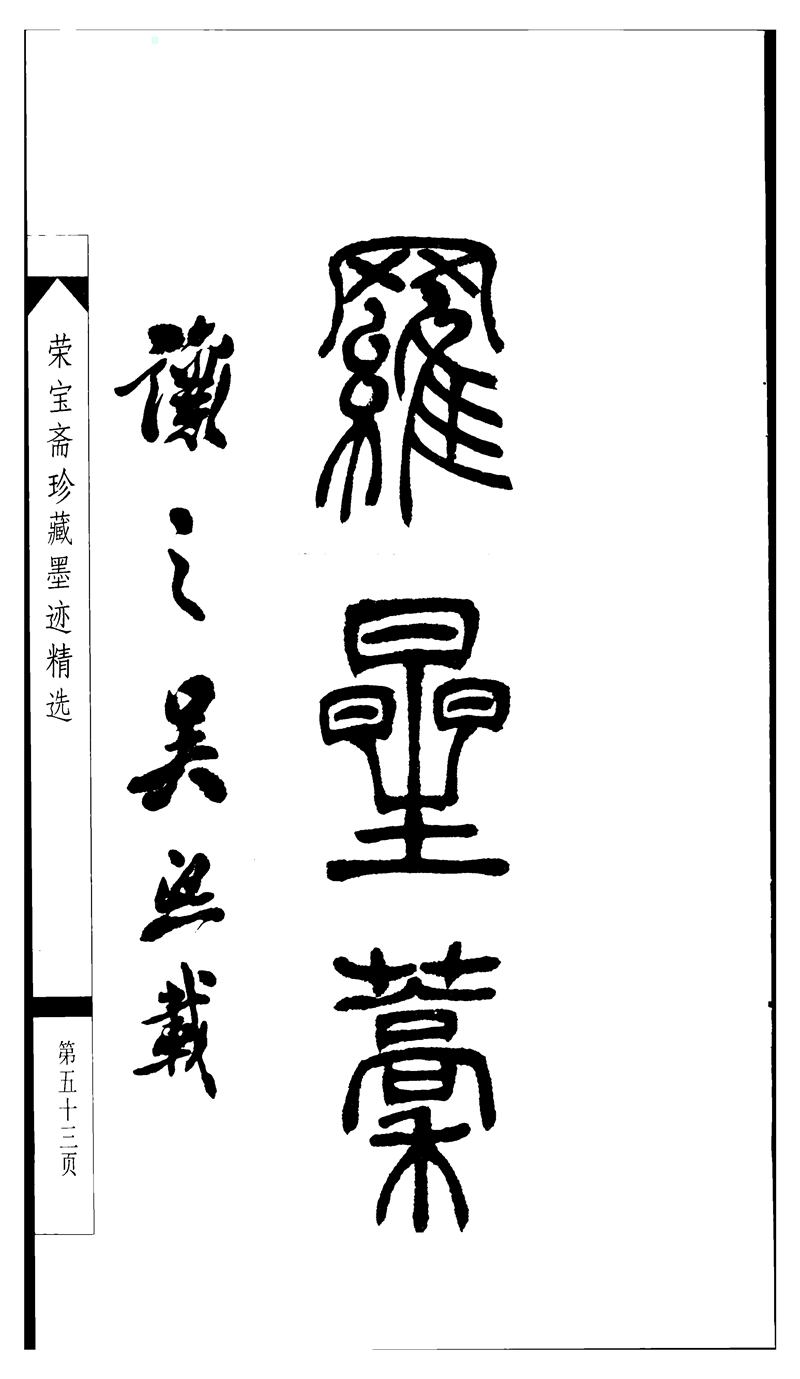 羅星藁
讓之吴熙載
荣宝斋珍藏墨迹精选
第五十三页